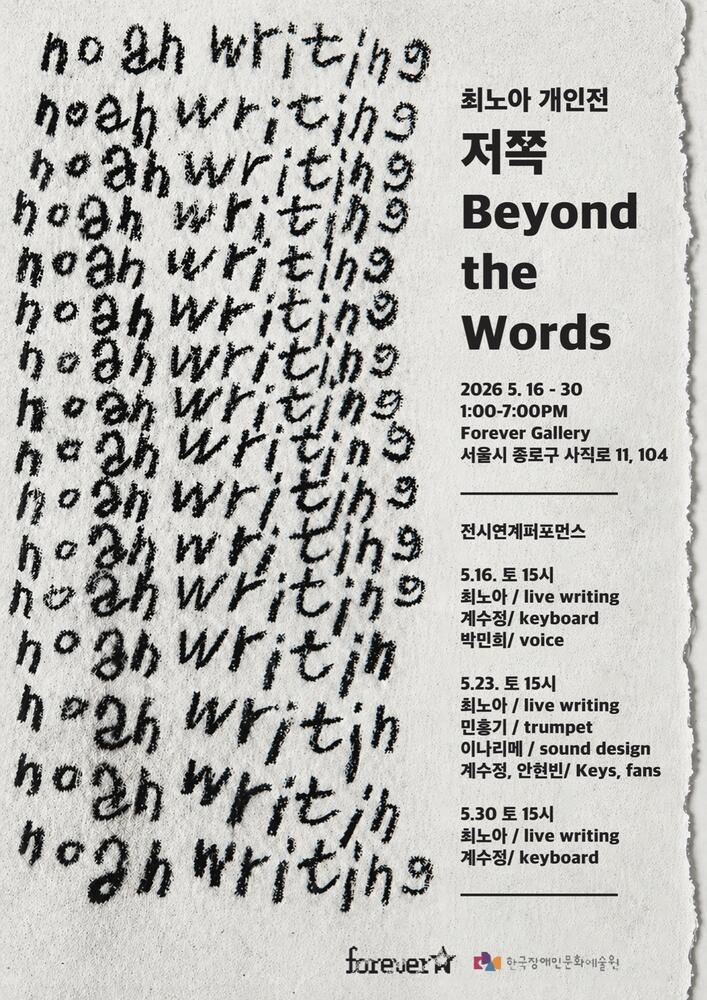 noah writing
noah writing
noah writing
noah writing
noah writing
noah writing
noah writing
noah writing
noah writing
noah writing
noah writing
noah writing
noah writin
noah writin
noah writin
noah writing
최노아 개인전
저쪽
Beyond
the
Words
2026 5. 16 - 30
1:00-7:00PM
Forever Gallery
서울시 종로구 사직로 11, 104
전시연계퍼포먼스
5.16. 토 15시
최노아 / live writing
계수정/ keyboard
박민희/ voice
5.23. 토 15시
최노아 / live writing
민홍기 / trumpet
이나리메 / sound design
계수정, 안현빈/ Keys, fans
5.30 토 15시
최노아 / live writing
계수정/ keyboard
forever
한국장애인문화예술원